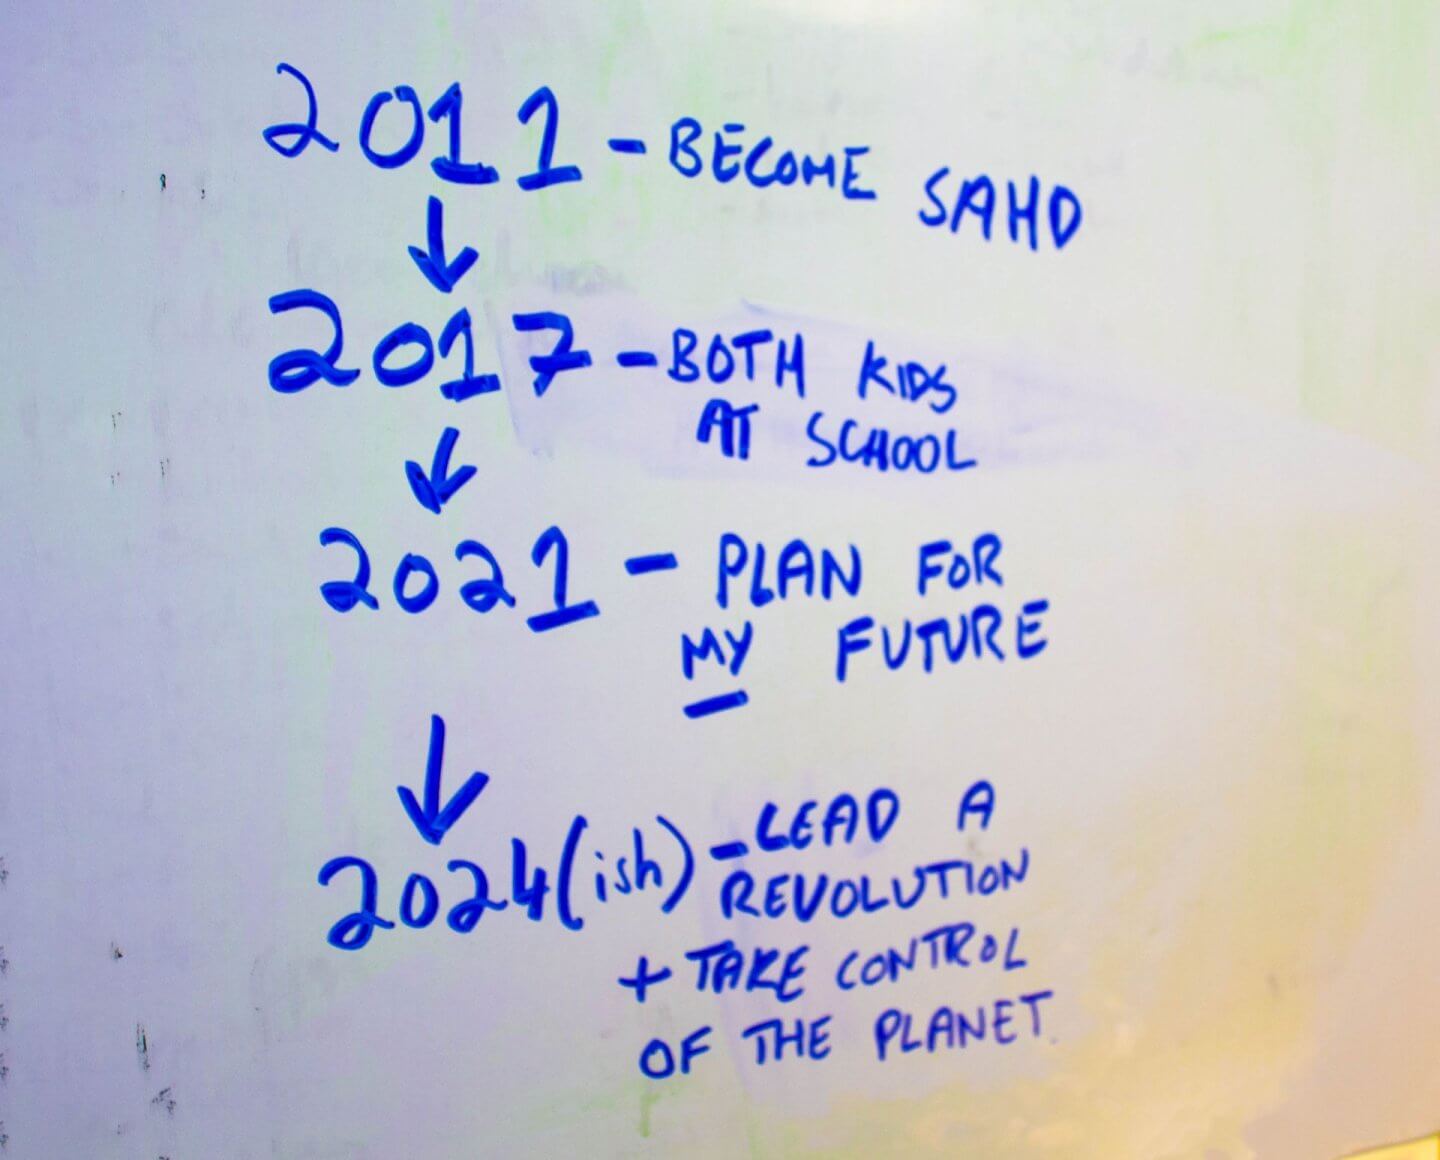 2011 - BECOME SAHD
↓
2017 - BOTH KIDS
AT SCHOOL
↓
2021 - PLAN FOR
MY FUTURE
↓
2024(ish) - LEAD A
REVOLUTION
+ TAKE CONTROL
OF THE PLANET.